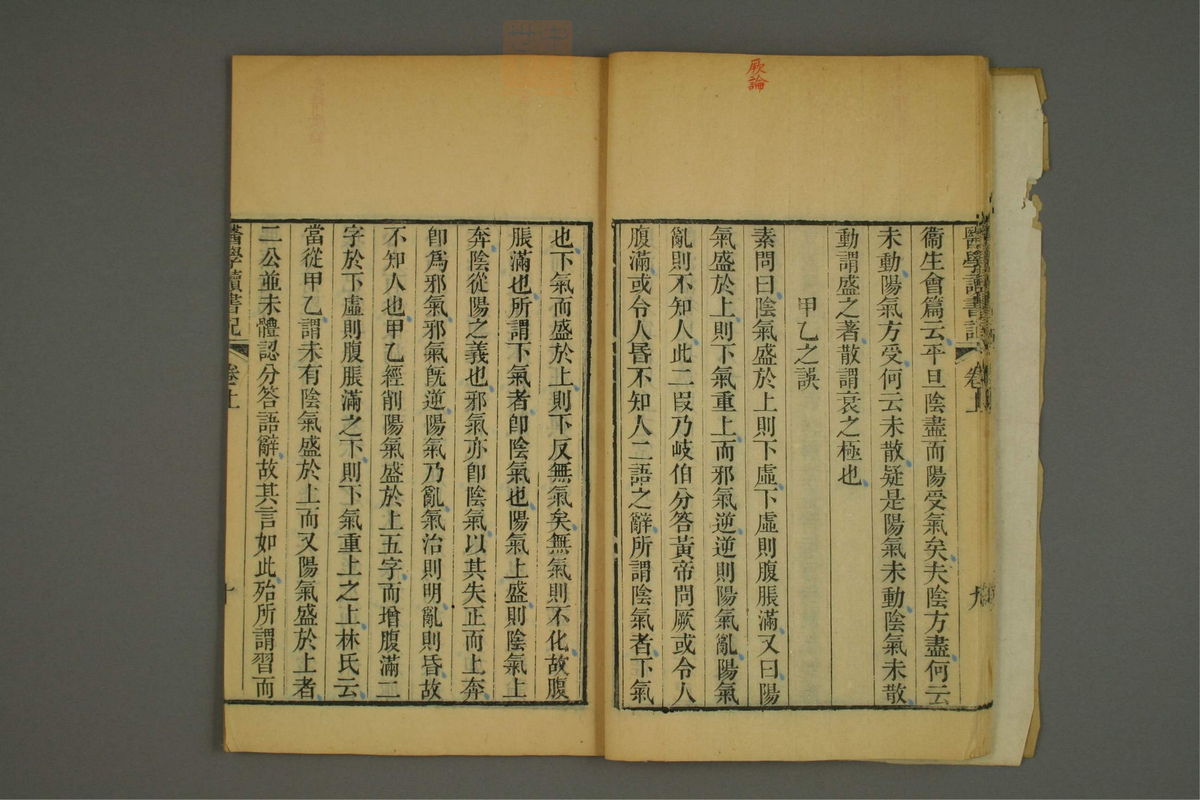 厥論
醫學讀書記
卷上
九
衞生會篇云平旦陰盡而陽受氣矣夫陰方盡何云
未動陽氣方受何云未散疑是陽氣未動陰氣未散
動謂盛之著散謂衰之極也
甲乙之誤
素問曰陰氣盛於上則下虛下虛則腹脹滿又曰陽
氣盛於上則下氣重上而邪氣逆逆則陽氣亂陽氣
亂則不知人此二段乃岐伯分答黃帝問厥或令人
腹滿或令人昬不知人二語之辭所謂陰氣者下氣
也下氣而盛於上則下反無氣矣無氣則不化故腹
脹滿也所謂下氣者卽陰氣也陽氣上盛則陰氣上
奔陰從陽之義也邪氣亦卽陰氣以其失正而上奔
卽爲邪氣邪氣旣逆陽氣乃亂氣治則明亂則昏故
不知人也甲乙經削陽氣盛於上五字而增腹滿二
字於下虛則腹脹滿之下則下氣重上之上林氏云
當從甲乙謂未有陰氣盛於上而又陽氣盛於上者
二公並未體認分答語辭故其言如此殆所謂習而
醫學讀書記
卷上
十